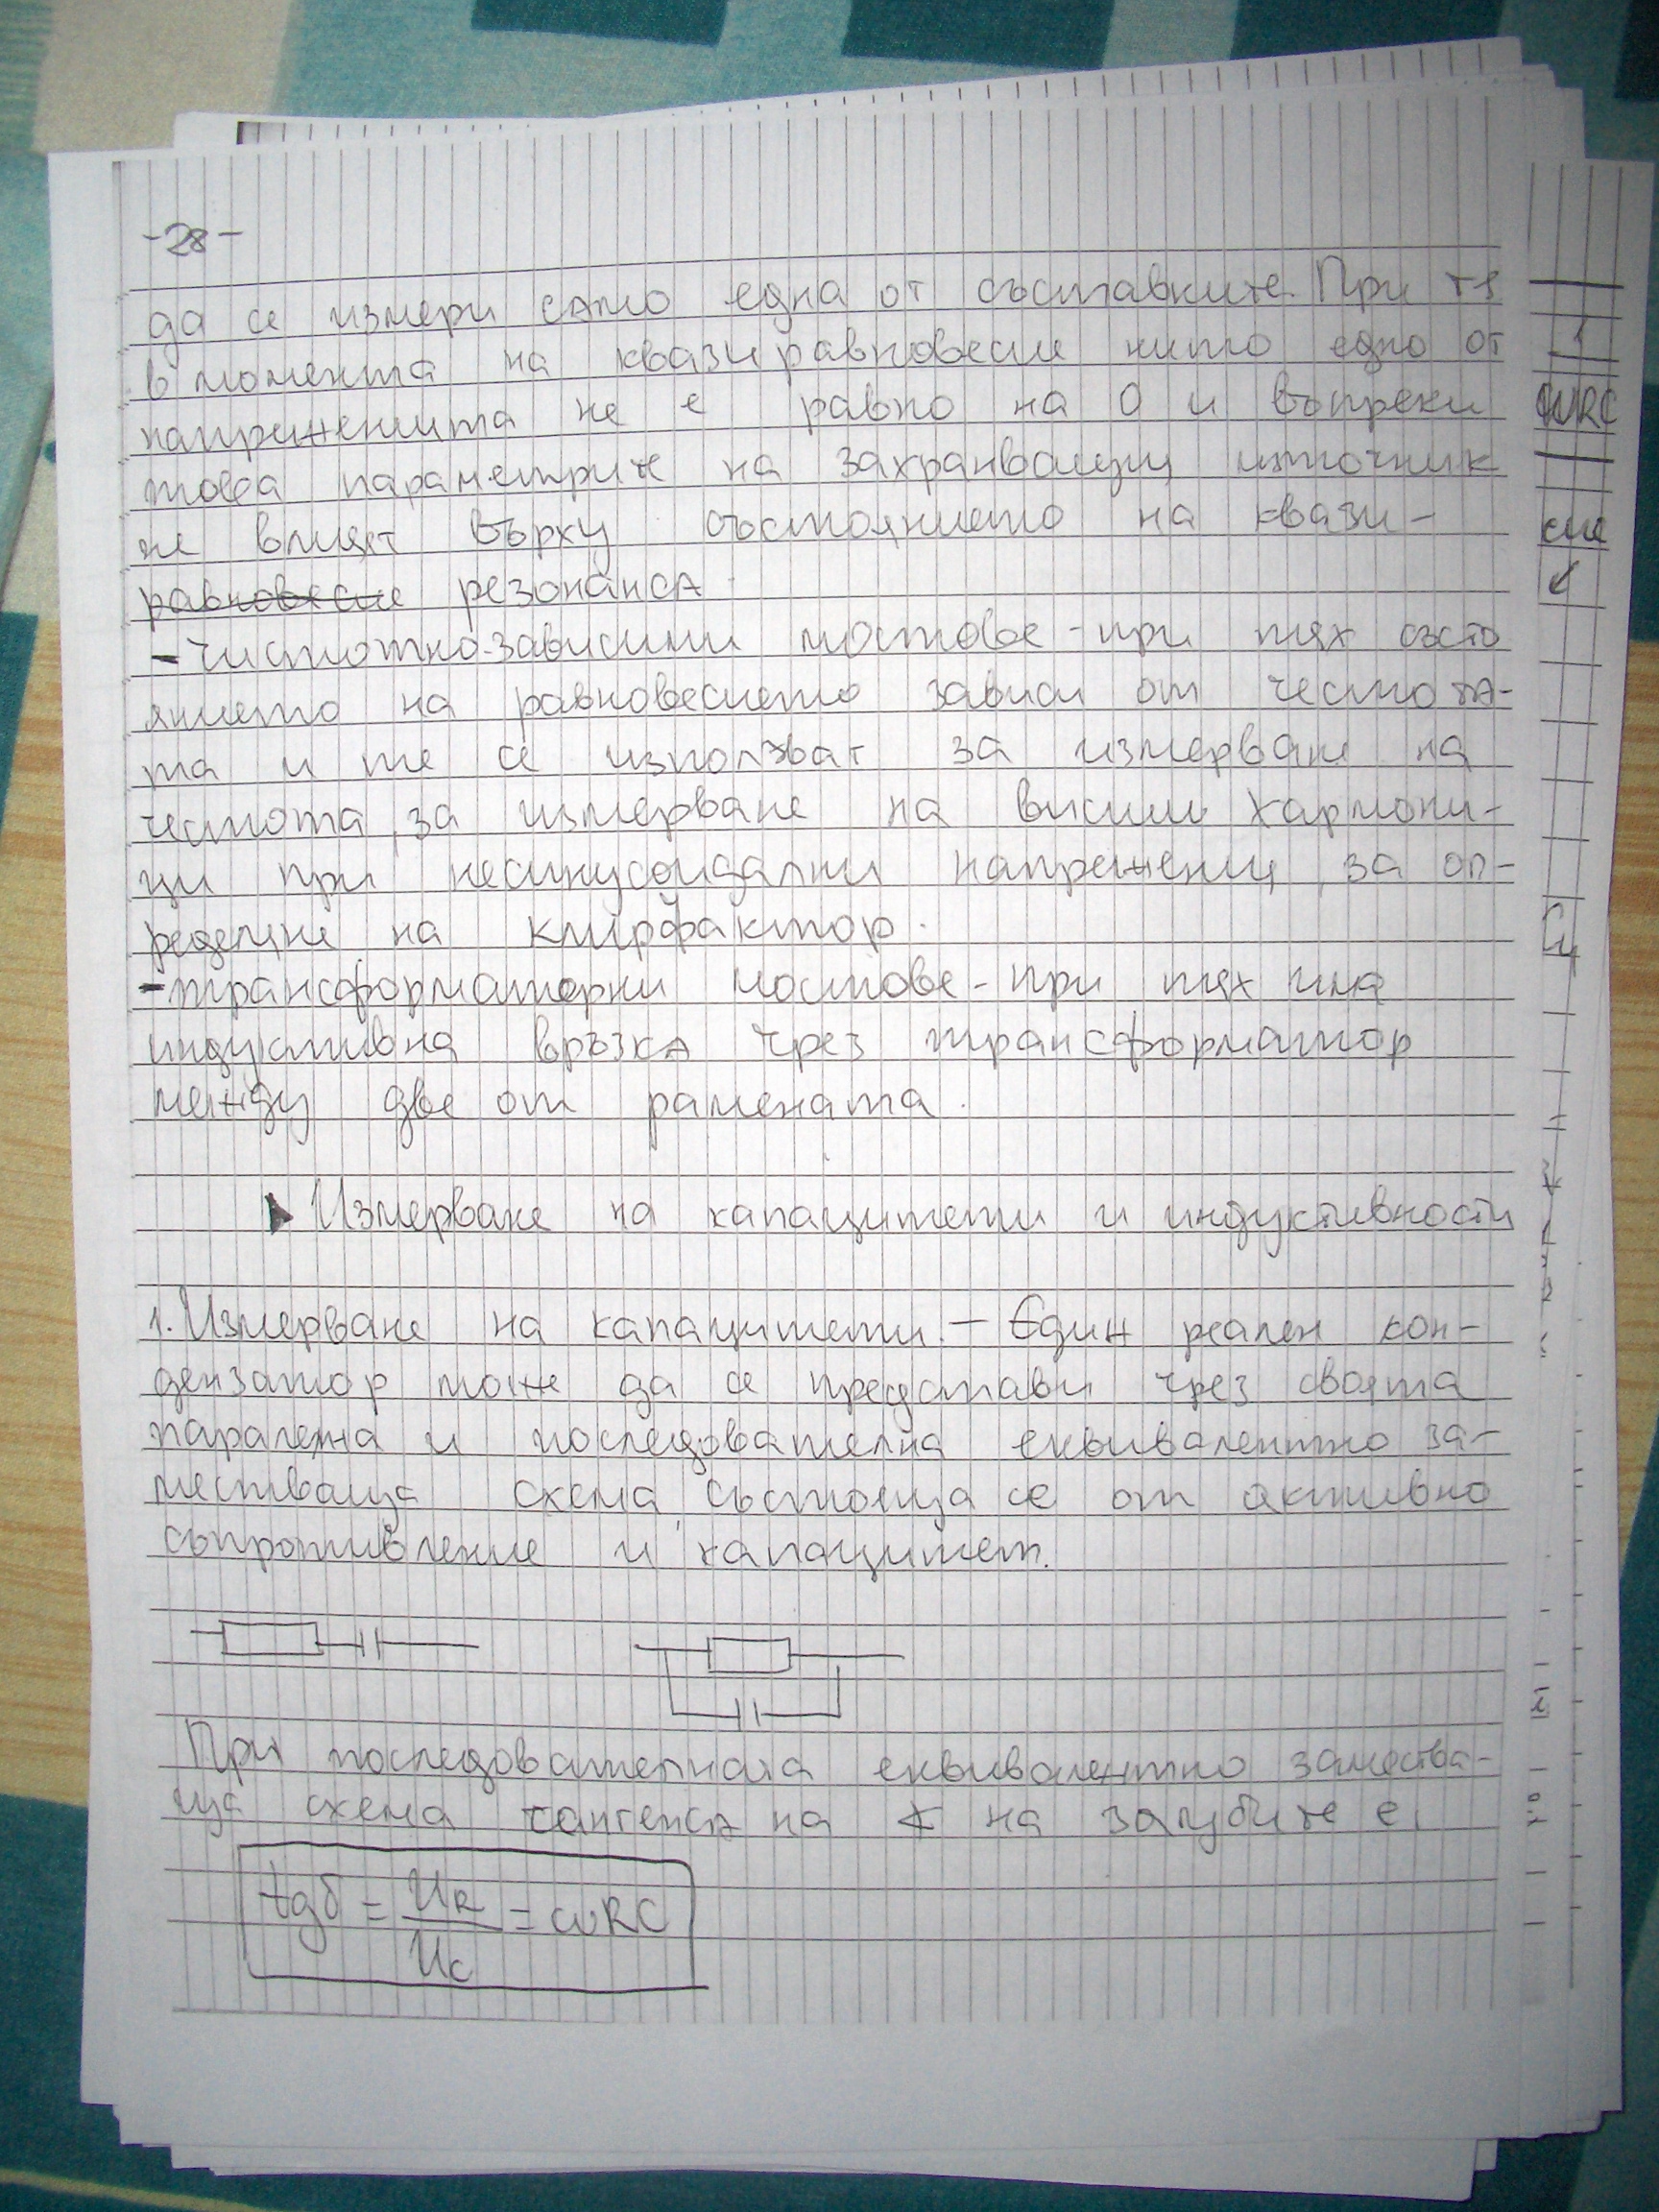 -28-
да се измери само една от съставките. При тях
в момента на квазиравновесие нито едно от
напреженията не е равно на 0 и въпреки
това параметрите на захранващия източник
не влияят върху състоянието на квази-
равновесие резонанса.
- Честотно-зависими мостове - при тях състо
янието на равновесието зависи от честота-
та и те се използват за измерване на
честота, за измерване на висши хармони-
ци при несинусоидални напрежения, за оп-
ределяне на клирфактор.
- трансформаторни мостове - при тях има
индуктивна връзка чрез трансформатор
между две от рамената.
Измерване на капацитети и индуктивности
1. Измерване на капацитети. - Един реален кон-
дензатор може да се представи чрез своята
паралелна и последователна еквивалентно за-
местваща схема, състояща се от активно
съпротивление и капацитет.
При последователната еквивалентно замества-
ща схема тангенса на ∢ на загубите е:
tgδ = UR/UC = ωRC
ωRC